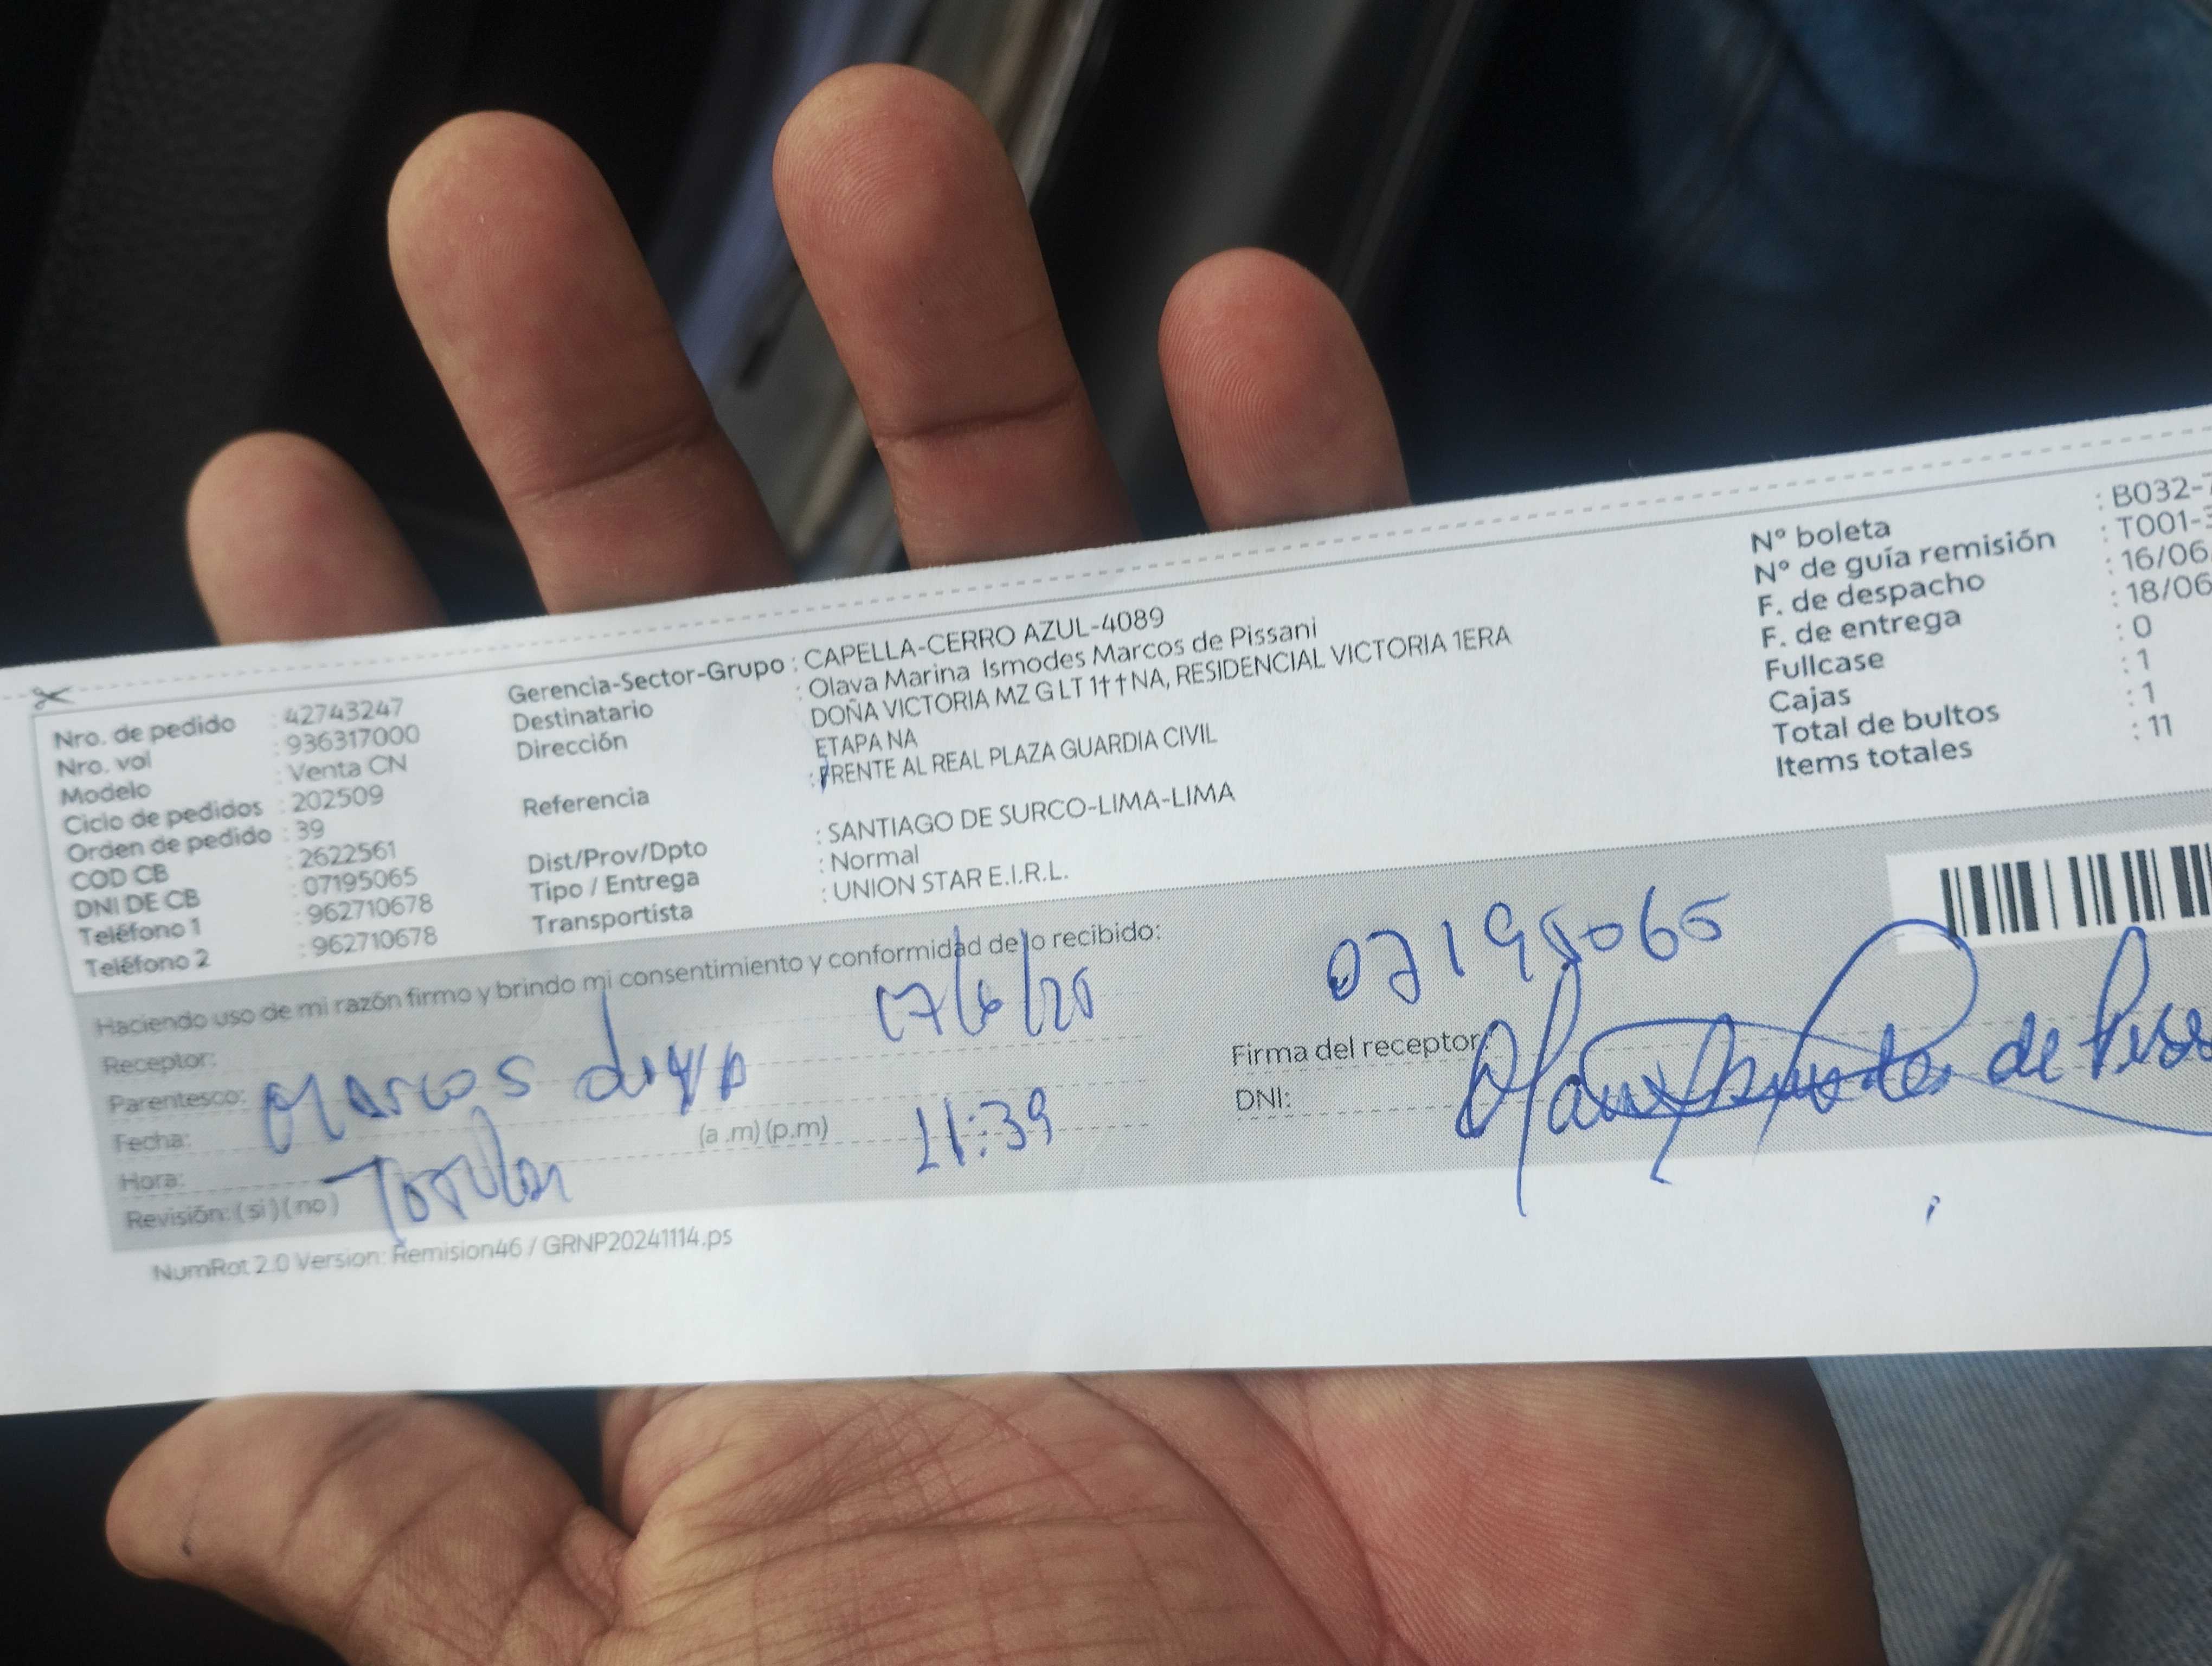 Nro. de pedido : 42743247
Nro. vol : 936317000
Modelo : Venta CN
Ciclo de pedidos : 202509
Orden de pedido : 39
COD CB : 2622561
DNI DE CB : 07195065
Teléfono 1 : 962710678
Teléfono 2 : 962710678
Gerencia-Sector-Grupo : CAPELLA-CERRO AZUL-4089
Destinatario : Olava Marina Ismodes Marcos de Pissani
Dirección : DOÑA VICTORIA MZ G LT 1††NA, RESIDENCIAL VICTORIA 1ERA
ETAPA NA
Referencia : FRENTE AL REAL PLAZA GUARDIA CIVIL
Dist/Prov/Dpto : SANTIAGO DE SURCO-LIMA-LIMA
Tipo / Entrega : Normal
Transportista : UNION STAR E.I.R.L.
N° boleta : B032-
N° de guía remisión : T001-
F. de despacho : 16/06
F. de entrega : 18/06
Fullcase : 0
Cajas : 1
Total de bultos : 1
Items totales : 11
Haciendo uso de mi razón firmo y brindo mi consentimiento y conformidad de lo recibido:
Receptor:
17/6/25
07195065
Parentesco: Marcos
Firma del receptor:
Fecha:
DNI:
Hora: (a .m) (p.m) 11:39
Revisión: (si) (no)
NumRot 2.0 Version: Remision46 / GRNP20241114.ps